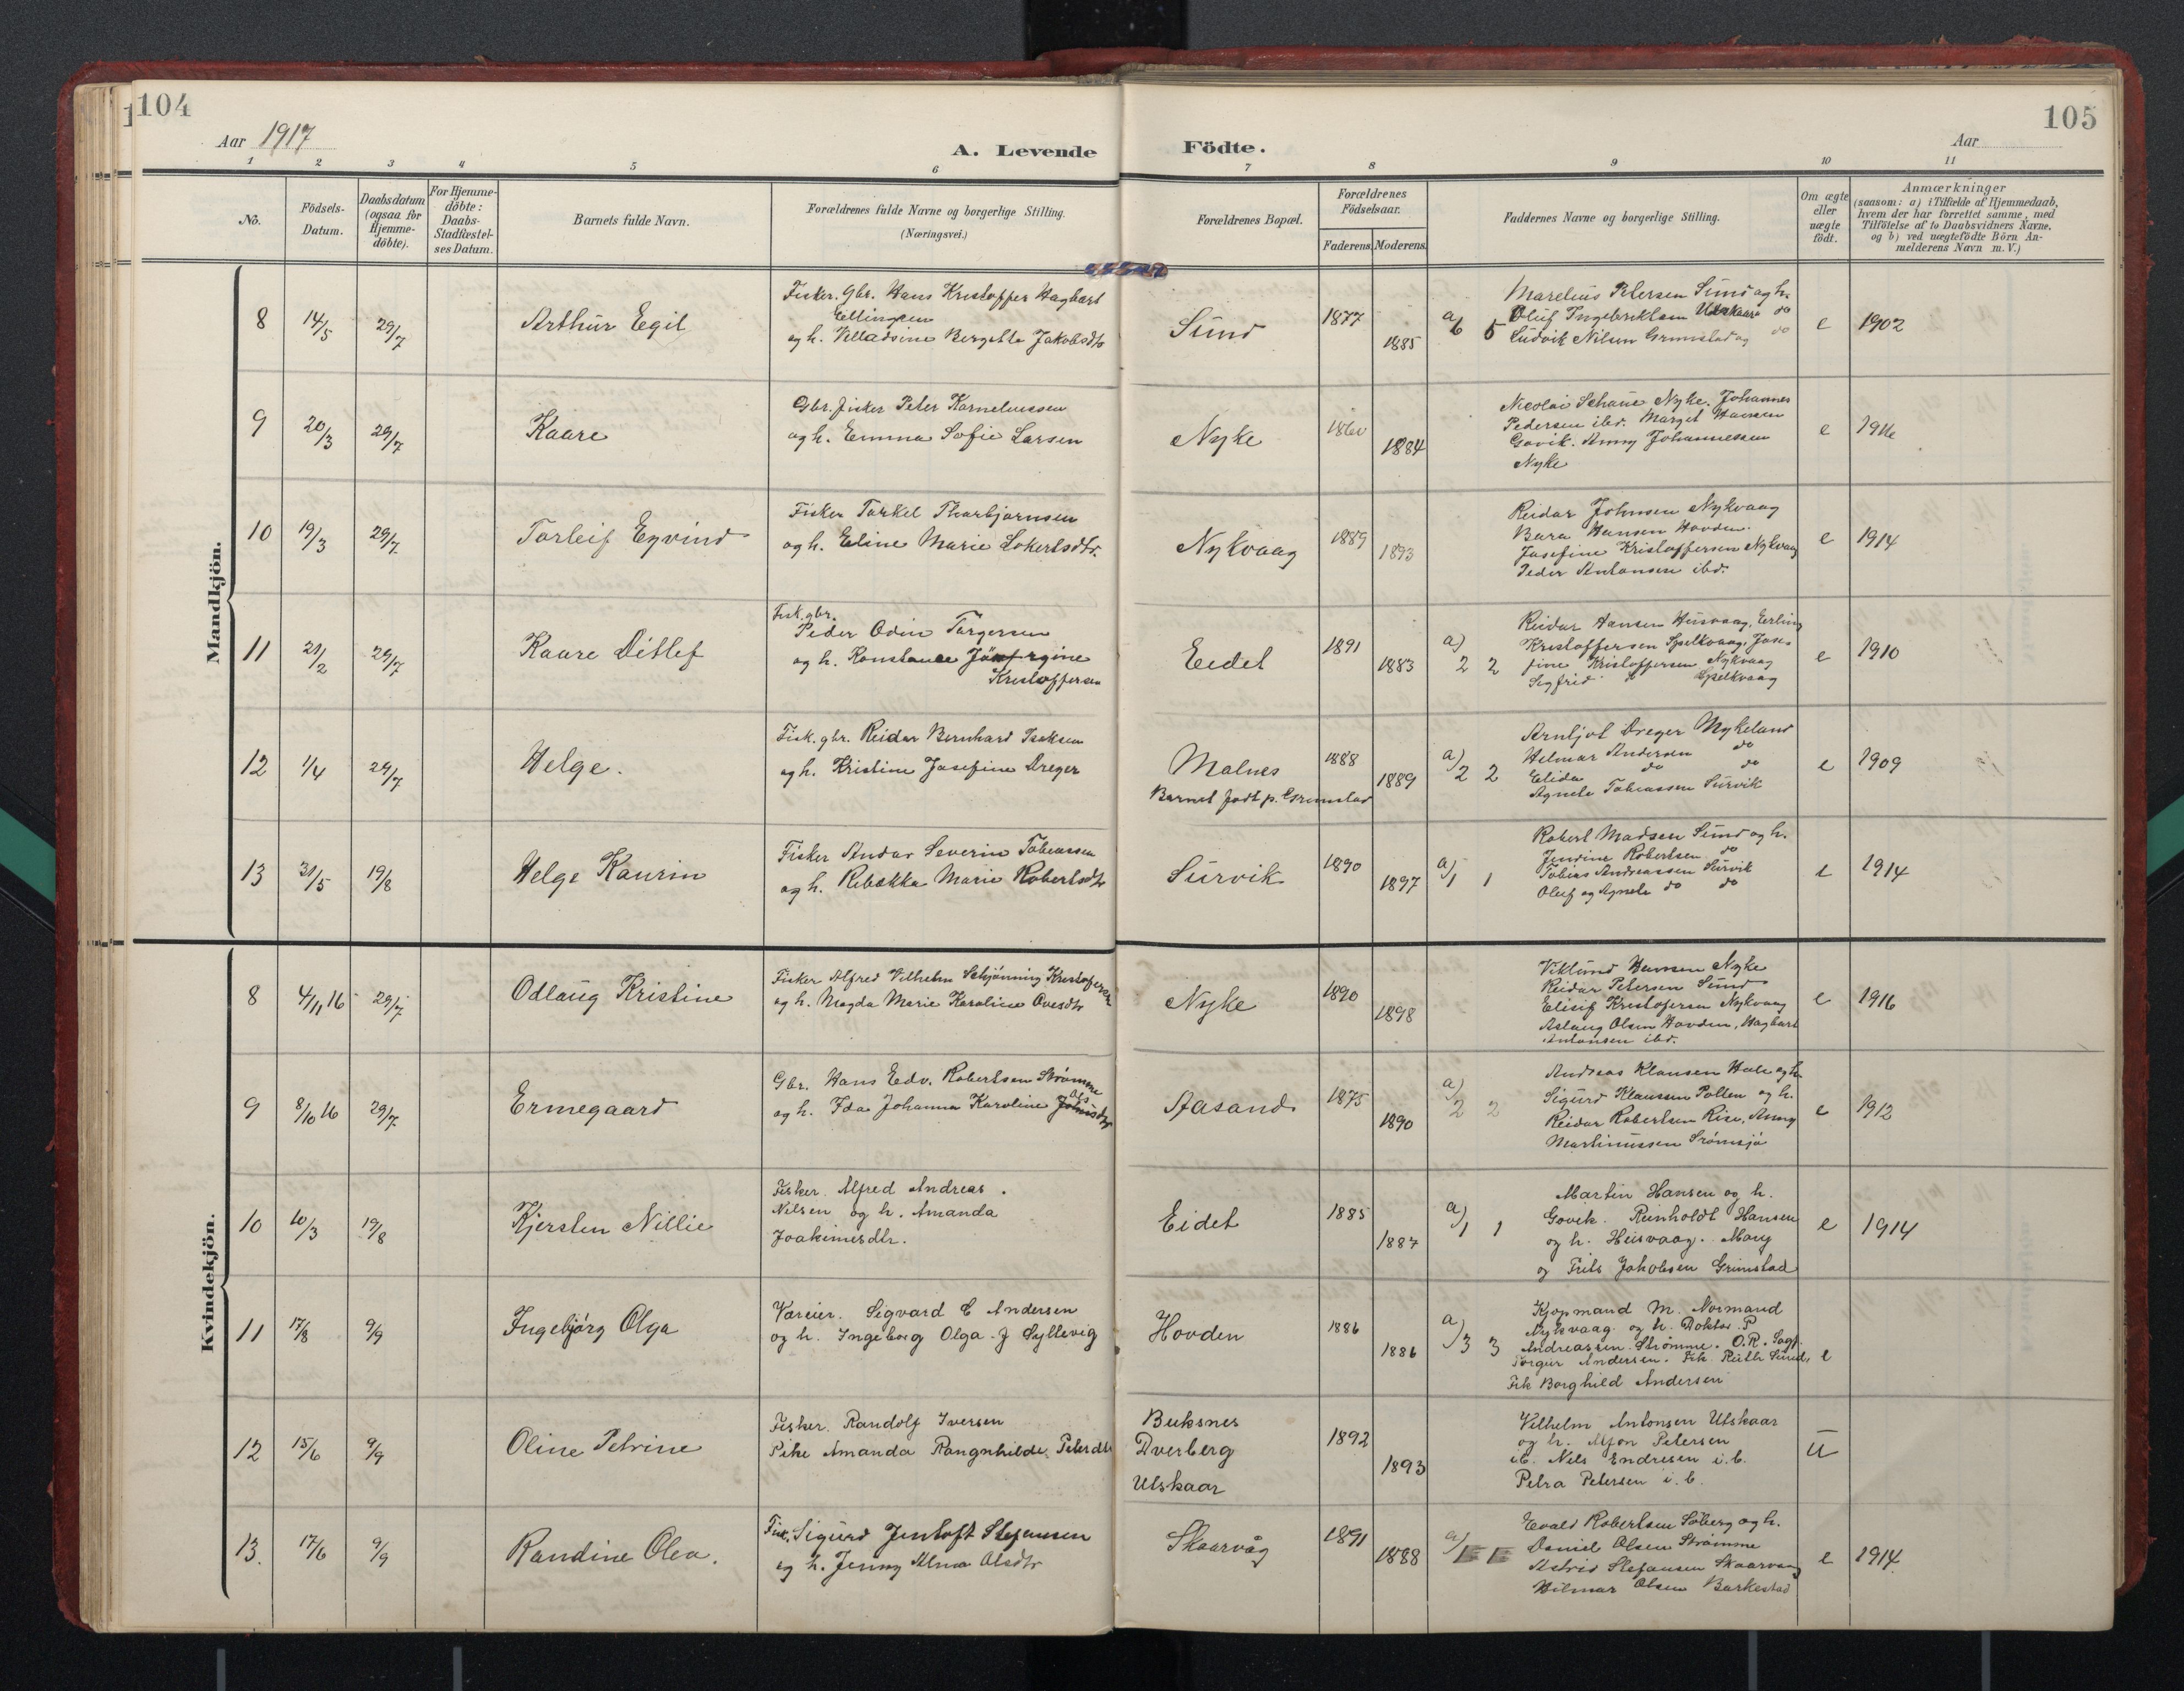 104
105
Aar 1917
A. Levende Födte.
Aar
1 2 3 4 5 6 7 8 9 10 11
No.
Födsels-
Datum.
Daabsdatum
(ogsaa for
Hjemme-
döbte).
For Hjemme-
döbte:
Daabs-
Stadfæstel-
ses Datum.
Barnets fulde Navn.
Forældrenes fulde Navne og borgerlige Stilling.
(Næringsvei.)
Forældrenes Bopæl.
Forældrenes
Födselsaar.
Faderens. Moderens.
Faddernes Navne og borgerlige Stilling.
Om ægte
eller
uægte
födt.
Anmærkninger
(saasom: a) i Tilfælde af Hjemmedaab,
hvem der har forrettet samme, med
Tilföielse af to Daabsvidners Navne,
og b) ved uægtefödte Börn An-
melderens Navn m. V.)
Mandkjön.
8 14/5 29/7 Arthur Egil
Fisker. Gbr. Hans Kristoffer Hagbart
Ellingsen
og h. Villadsine Bergette Jakobsdtr
Sund 1877 1885 a) 6 5
Marelius Petersen Sund og h.
Oluf Ingebriktsen Utskaar do
Ludvik Nilsen Grimstad og do
e 1902
9 20/3 29/7 Kaare
Gbr. fisker Peter Korneliussen
og h. Emma Sofie Larsen
Nyke 1884
Nicolai Schaue Nyke. Johannes
Pedersen ibd. Marget Hansen
Govik. Anny Johannessen
Nyke
e 1916
10 19/3 29/7 Torleif Eyvind
Fisker Torkel Thorbjornsen
og h. Eline Marie Lokertsdtr.
Nykvaag 1889 1893
Reidar Johnsen Nykvaag
Bara Hansen Hovden.
Josefine Kristoffersen Nykvaag
Peder Antonsen ibd.
e 1914
11 21/2 29/7 Kaare Ditlef
Fisk. gbr.
Peder Odin Torgersen
og h. Konstance
Kristoffersen
Eidet 1891 1883 a) 2 2
Reidar Hansen Husvaag, Erling
Kristoffersen Spelkvaag, Jose-
fine Kristoffersen Nykvaag
Sigfrid do Spelkvaag
e 1910
12 1/4 29/7 Helge.
Fisk. gbr. Reidar Bernhard Isaksen
og h. Kristine Josefine Dreger
Malnes
Barnet født p. Grimstad
1888 1889 a) 2 2
Arnljot Dreger Nykeland
Helmar Andersen do
Elida do do
Agnete Tobiassen Survik
e 1909
13 31/5 19/8 Helge Kaurin
Fisker Andor Severin Tobiassen
og h. Rebekka Marie Robertsdtr
Survik 1890 1897 a) 1 1
Robert Madsen Sund og h.
Jensine Robertsen do
Tobias Andreassen Survik
Oluf og Agnete do do
e 1914
Kvindekjön.
8 4/11 16 29/7 Odlaug Kristine
Fisker Alfred Vilhelm Schjönning Kristofersen
og h. Magda Marie Karoline Ovesdtr
Nyke 1890 1898
Viklund Hansen Nyke
Reidar Petersen Sund
Elisif Kristofersen Nykvaag
Aslaug Olsen Hovden, Hagbart
Antonsen ibd.
e 1916
9 8/10 16 29/7 Ermegaard
Gbr. Hans Edv. Robertsen Strömme
og h. Ida Johanna Karoline
Aasand 1875 1890 a) 2 2
Andreas Klausen Hole og h.
Sigurd Klaussen Pollen og h.
Reidar Robertsen Rise, Anny
Martinussen Strömsjö
e 1912
10 10/3 19/8 Kjersten Nillie
Fisker. Alfred Andreas.
Nilsen og h. Amanda
Joakimesdtr.
Eidet 1885 1887 a) 1 1
Martin Hansen og h.
Govik. Reinholdt Hansen
og h. Husvaag. Mary
og Frits Jakobsen Grimstad
e 1914
11 17/8 9/9 Ingebjörg Olga
Væreier. Segvard E Andersen
og h. Ingeborg Olga J Syllevig
Hovden 1886 1886 a) 3 3
Kjøpmand M. Normand
Nykvaag og h. Doktor P
Andreassen Strömme. O.R. Sagf.
Torgur Andersen. Frk. Ruth Sund,
Frk Borghild Andersen
e
12 15/6 9/9 Oline Petrine
Fisker. Randolf Iversen
Pike Amanda Rangnhilde Petersdtr
Buksnes
Dverberg
Utskaar
1892 1893
Vilhelm Antonsen Utskaar
og h. Alfon Petersen
ib. Nils Endresen i.b.
Petra Petersen i.b.
U
13. 17/6 9/9 Randine Olea.
Fisk. Sigurd Jentoft Stefansen
og h. Jenny Alma Olsdtr
Skaarvåg 1891 1888 a)
Evald Robertsen Söberg og h.
Daniel Olsen Strömme
Astrid Stefansen Skaarvaag
Hilmar Olsen Barkestad
e 1914